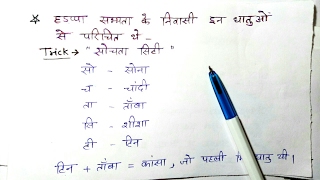 ☆ हडप्पा सभ्यता के निवासी इन धातुओं
से परिचित थे -
Trick → "सोचता सिटी"
सो - सोना
च - चांदी
ता - ताँबा
सि - शीशा
टी - टिन
टिन + ताँबा = कांसा, जो पहली मि धातु थी।